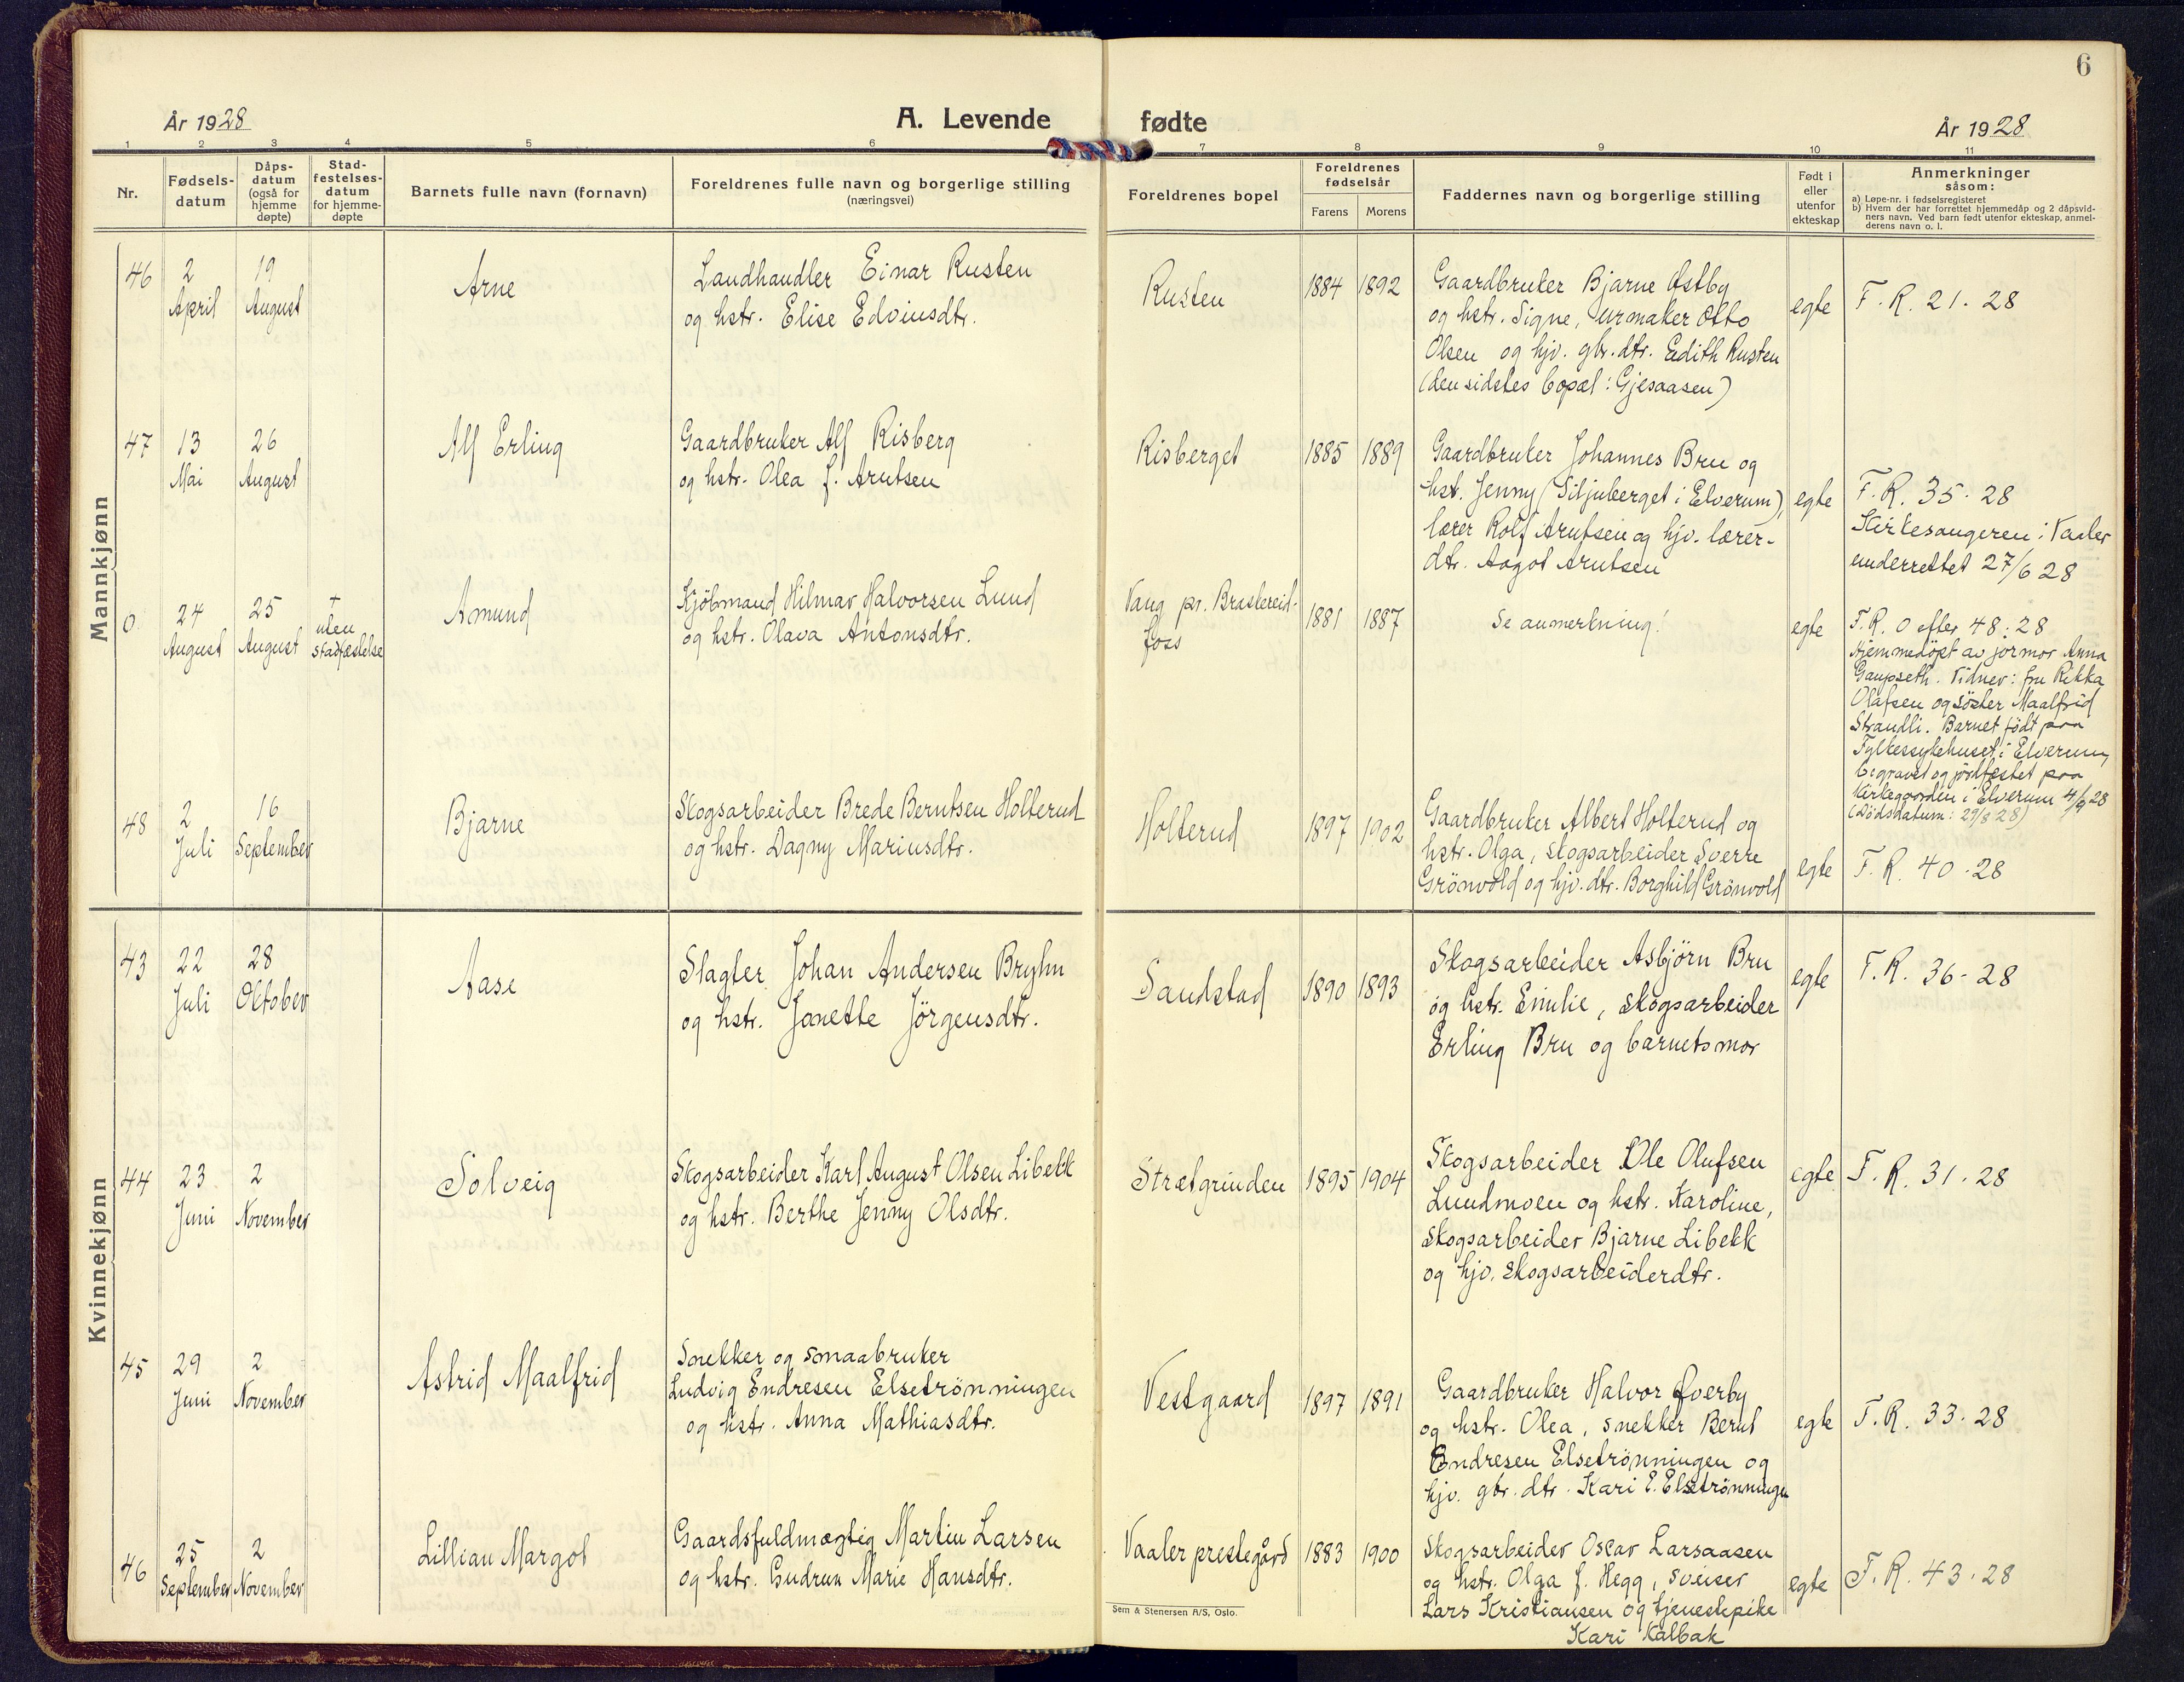 6
År 1928
A. Levende
fødte
År 1928
1 2 3 4 5 6 7 8 9 10 11
Nr.
Fødsels-
datum
Dåps-
datum
(også for
hjemme
døpte)
Stad-
festelses-
datum
for hjemme-
døpte
Barnets fulle navn (fornavn)
Foreldrenes fulle navn og borgerlige stilling
(næringsvei)
Foreldrenes bopel
Foreldrenes
fødselsår
Farens
Morens
Faddernes navn og borgerlige stilling
Født i
eller
utenfor
ekteskap
Anmerkninger
såsom:
a) Løpe-nr. i fødselsregisteret
b) Hvem der har forrettet hjemmedåp og 2 dåpsvid-
ners navn. Ved barn født utenfor ekteskap, anmel-
derens navn o. l.
Mannkjønn
46
2
April
19
August
Arne
Landhandler Einar Rusten
og hstr. Elise Edvinsdtr.
Rusten
1884
1892
Gaardbruker Bjarne Østby
og hstr. Signe, urmaker Otto
Olsen og hjv. gbr. dtr. Edith Rusten
(den sidstes bopæl: Gjesaasen)
egte
F. R. 21. 28
47
13
Mai
26
August
Alf Erling
Gaardbruker Alf Risberg
og hstr. Olea f. Arntsen
Risberget
1885
1889
Gaardbruker Johannes Bru og
hst. Jenny (Siljuberget i Elverum),
lærer Rolf Arntsen og hjv. lærer-
dtr. Aagot Arntsen
egte
F. R. 35. 28
Kirkesangeren i Vaaler
underrettet 27/6 28
0
24
August
25
August
†
uten
stadfæstelse
Amund
Kjöbmand Hilmar Halvorsen Lund
og hstr. Olava Antonsdtr.
Vang pr. Braskereid-
foss
1881
1887
Se anmerkning!
egte
F. R. 0 efter 48: 28
Hjemmedöpt av jormor Anna
Gaupseth. Vidner: fru Rikka
Olafsen og söster Maalfrid
Strandli. Barnet født paa
Fylkessykehuset i Elverum,
begravet og jordfestet paa
Kirkegaarden i Elverum 4/9 28
(Dödsdatum: 29/8 28)
48
2
Juli
16
September
Bjarne
Skogsarbeider Brede Berntsen Holterud
og hstr. Dagny Mariusdtr.
Holterud
1897
1902
Gaardbruker Albert Holterud og
hstr. Olga, skogsarbeider Sverre
Grönvold og hjv. dtr. Borghild Grönvold
egte
F. R. 40. 28
Kvinnekjønn
43
22
Juli
28
Oktober
Aase
Slagter Johan Andersen Bryhn
og hstr. Janette Jörgensdtr.
Sandstad
1890
1893
Skogsarbeider Asbjörn Bru
og hstr. Emilie, skogsarbeider
Erling Bru og barnets mor
egte
F. R. 36. 28
44
23
Juni
2
November
Solveig
Skogsarbeider Karl August Olsen Libekk
og hstr. Berthe Jenny Olsdtr.
Strætgrinden
1895
1904
Skogsarbeider Ole Olufsen
Lundmoen og hstr. Karoline,
skogsarbeider Bjarne Libekk
og hjv. skogsarbeiderdtr.
egte
F. R. 31. 28
45
29
Juni
2
November
Astrid Maalfrid
Snekker og smaabruker
Ludvig Endresen Elsetrönningen
og hstr. Anna Mathiasdtr.
Vestgaard
1897
1891
Gaardbruker Halvor Øverby
og hstr. Olea, snekker Bernt
Endresen Elsetrönningen og
hjv. gbr. dtr. Kari E. Elsetrönningen
egte
F. R. 33. 28
46
25
September
2
November
Lillian Margot
Gaardsfuldmægtig Martin Larsen
og hstr. Gudrun Marie Hansdtr.
Vaaler prestegård
1883
1900
Skogsarbeider Oscar Larsaasen
og hstr. Olga f. Hegg, sveiser
Lars Kristiansen og tjenestepike
Kari Kalbak
egte
F. R. 43. 28
Sem & Stenersen A/S, Oslo.